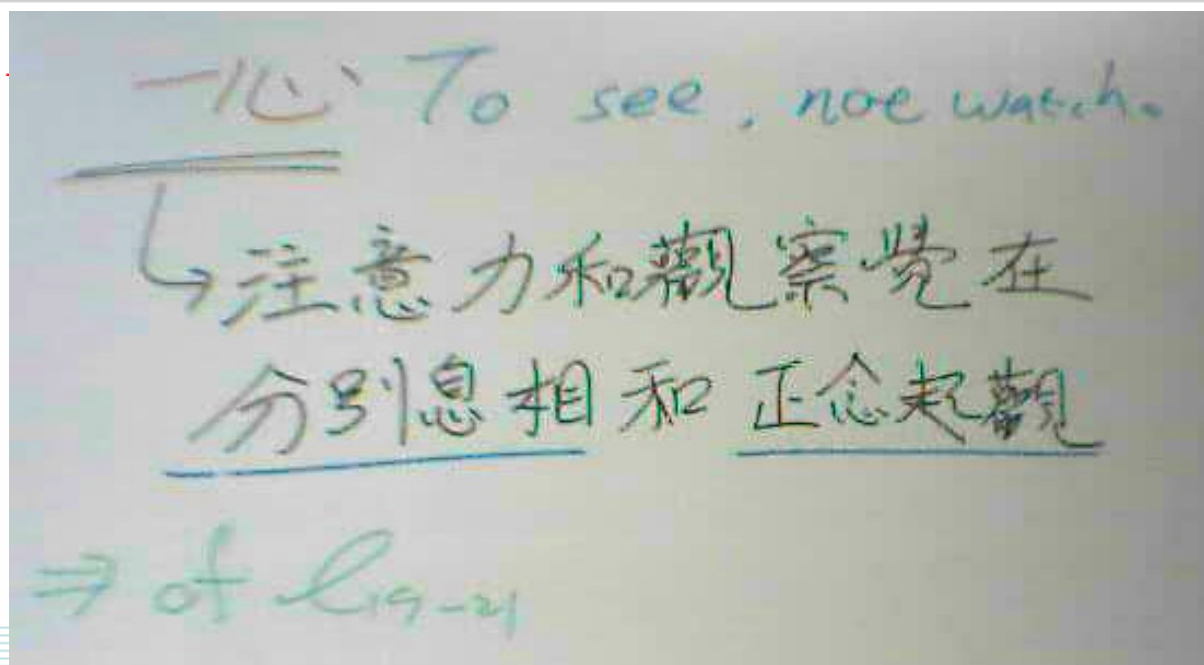 一心 To see, not watch.
注意力和觀察覺在
分別息相和正念起觀
⇒ of l19-21